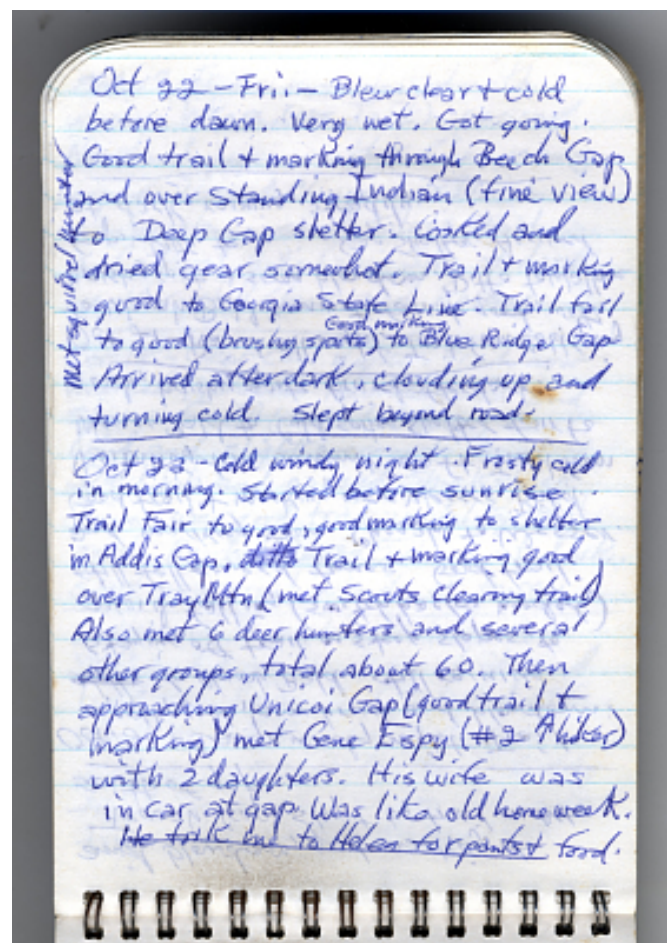 Oct 22 - Fri. - Blew clear + cold
before dawn. Very wet. Got going.
Good trail + marking through Beech Gap
and over Standing Indian (fine view)
to Deep Gap shelter. Cooked and
dried gear somewhat. Trail + marking
good to Georgia State Line. Trail fair
Good marking
to good (brushy spots) to Blue Ridge Gap
Arrived after dark, clouding up and
turning cold. Slept beyond road.
met squirrel hunter
Oct 23 - Cold windy night. Frosty cold
in morning. Started before sunrise.
Trail Fair to good, good marking to shelter
in Addis Gap, ditto Trail + marking good
over Tray Mtn (met Scouts clearing trail)
Also met 6 deer hunters and several
other groups, total about 60. Then
approaching Unicoi Gap (good trail +
marking) met Gene Espy (#2 A hiker)
with 2 daughters. His wife was
in car at gap. Was like old home week.
He took me to Helen for pants + food.